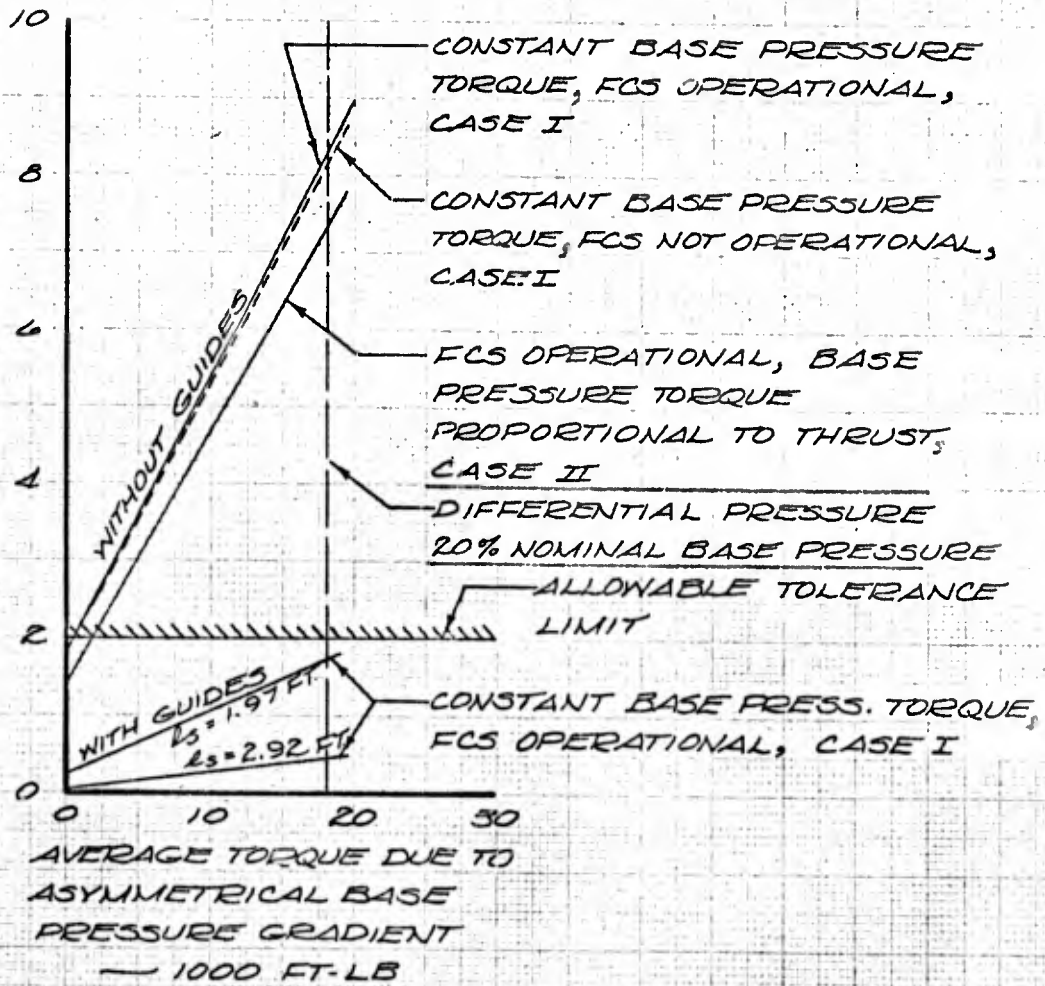 10
CONSTANT BASE PRESSURE
TORQUE, FCS OPERATIONAL,
CASE I
8
CONSTANT BASE PRESSURE
TORQUE, FCS NOT OPERATIONAL,
CASE I
6
FCS OPERATIONAL, BASE
PRESSURE TORQUE
PROPORTIONAL TO THRUST,
CASE II
WITHOUT GUIDES
4
DIFFERENTIAL PRESSURE
20% NOMINAL BASE PRESSURE
ALLOWABLE TOLERANCE
LIMIT
2
WITH GUIDES
ls = 1.97 FT.
CONSTANT BASE PRESS. TORQUE,
FCS OPERATIONAL, CASE I
ls = 2.92 FT.
0
0 10 20 30
AVERAGE TORQUE DUE TO
ASYMMETRICAL BASE
PRESSURE GRADIENT
— 1000 FT-LB